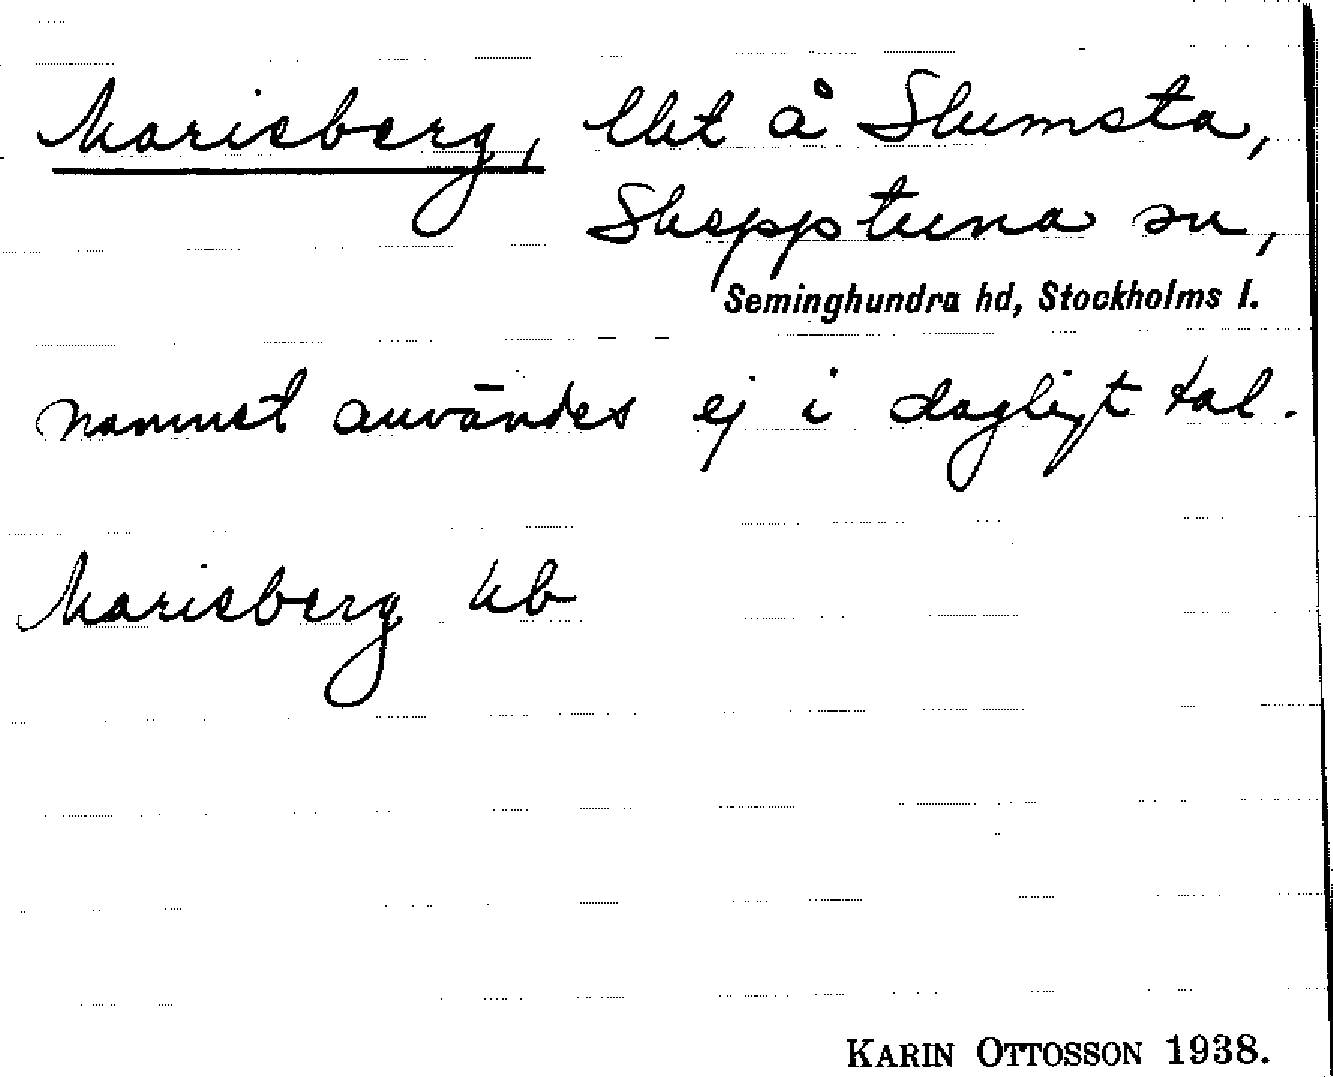 Marieberg, lht å Skumsta,
Skepptuna sn,
Seminghundra hd, Stockholms l.
namnet användes ej i dagligt tal.
Marieberg kb
KARIN OTTOSSON 1938.